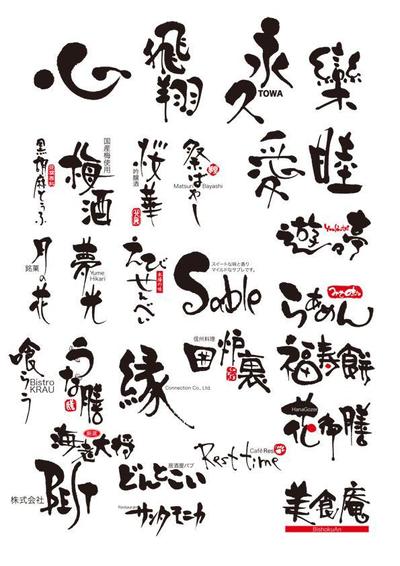 心
飛翔
永久
TOWA
欒
黒胡麻とうふ
国産梅使用
梅酒
桜華
吟醸酒
祭ばやし
Matsuri Bayashi
愛
睦
遊る亭
銘菓
月の花
夢光
Yume
Hikari
えびせんべい
本場の味
スイートな味と香り
マイルドなサブレです。
Sable
らあめん
喰うう
Bistro
KRAU
うな膳
縁
Connection Co., Ltd.
信州料理
囲炉裏
福寿餅
HanaGozen
花御膳
厳選
海老大将
株式会社
BEST
居酒屋パブ
どんとこい
Restaurant
サンタモニカ
Café Res
Rest time
美食庵
BishokuAn